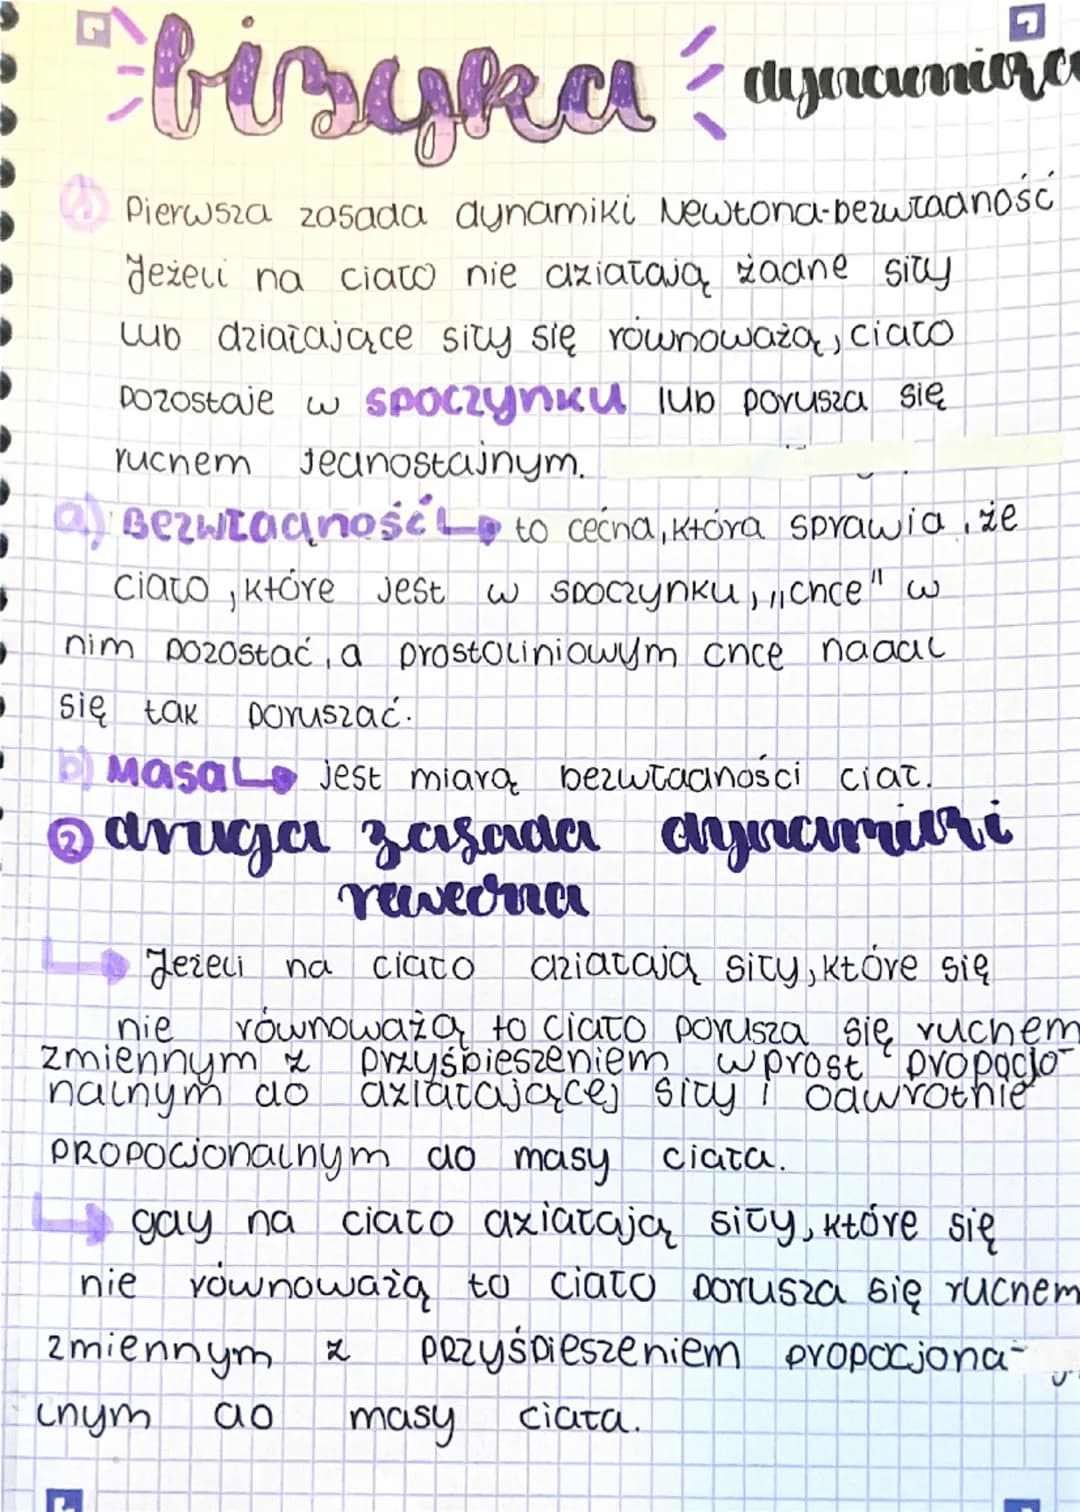 fizyka dynamika
1) Pierwsza zasada dynamiki Newtona-bezwładność
Jeżeli na ciało nie działają żadne siły
lub działające siły się równoważą, ciało
pozostaje w spoczynku lub porusza się
ruchem jednostajnym.
a) Bezwładność to cecha, która sprawia, że
ciało, które jest w spoczynku, „chce" w
nim pozostać, a prostoliniowym chce nadal
się tak poruszać.
b) Masa jest miarą bezwładności ciał.
2 druga zasada dynamiki
jest miarą
Jeżeli na ciało działają siły, które się
nie równoważą to ciało porusza się ruchem
zmiennym z przyśpieszeniem wprost propocjo-
nalnym do działającej siły i odwrotnie
PROPOCJONALNYM do masy ciała.
gdy na ciało działają siły, które się
nie równoważą to ciało porusza się ruchem
zmiennym z przyśpieszeniem propocjona-
lnym do masy ciała.